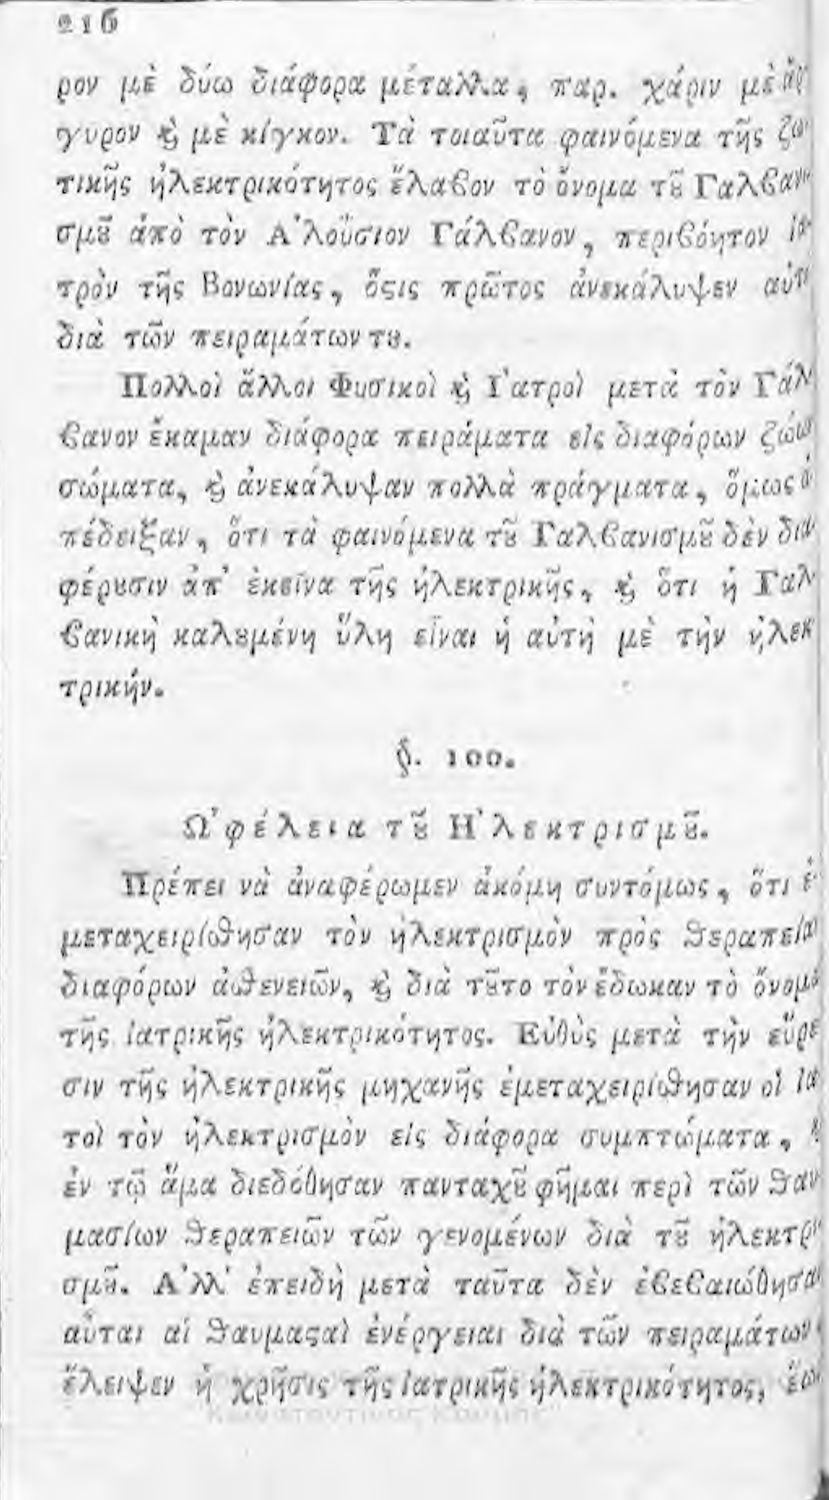 216
ρον μὲ δύω διάφορα μέταλλα, παρ. χάριν μὲ ἄρ
γυρον ϗ̀ μὲ κίγκον. Τὰ τοιαῦτα φαινόμενα τῆς ζω
τικῆς ἠλεκτρικότητος ἔλαβον τὸ ὄνομα τȣ͂ Γαλβανι
σμȣ͂ ἀπὸ τὸν Α᾿λοΰσιον Γάλβανον, περιβόητον ἰα
τρὸν τῆς Βονωνίας, ὅϛις πρῶτος ἀνεκάλυψεν αὐτὰ
διὰ τῶν πειραμάτων τȣ.
Πολλοὶ ἄλλοι Φυσικοὶ ϗ̀ Ι᾿ατροὶ μετὰ τὸν Γάλ
βανον ἔκαμαν διάφορα πειράματα εἰς διαφόρων ζώων
σώματα, ϗ̀ ἀνεκάλυψαν πολλὰ πράγματα, ὅμως ἀ
πέδειξαν, ὅτι τὰ φαινόμενα τȣ͂ Γαλβανισμȣ͂ δὲν δια
φέρȣσιν ἀπ᾿ ἐκεῖνα τῆς ἠλεκτρικῆς, ϗ̀ ὅτι ἡ Γαλ
βανικὴ καλȣμένη ὕλη εἶναι ἡ αὐτὴ μὲ τὴν ἠλεκ
τρικήν.
§. 100.
Ω᾿φέλεια τȣ͂ Η᾿λεκτρισμȣ͂.
Πρέπει νὰ ἀναφέρωμεν ἀκόμη συντόμως, ὅτι ἐ
μεταχειρίσθησαν τὸν ἠλεκτρισμὸν πρὸς θεραπείαν
διαφόρων ἀσθενειῶν, ϗ̀ διὰ τȣ͂το τὸν ἔδωκαν τὸ ὄνομα
τῆς ἰατρικῆς ἠλεκτρικότητος. Εὐθὺς μετὰ τὴν εὕρε
σιν τῆς ἠλεκτρικῆς μηχανῆς ἐμεταχειρίσθησαν οἱ ἰα
τοὶ τὸν ἠλεκτρισμὸν εἰς διάφορα συμπτώματα,
ἐν τῷ ἅμα διεδόθησαν πανταχȣ͂ φῆμαι περὶ τῶν θαυ
μασίων θεραπειῶν τῶν γενομένων διὰ τȣ͂ ἠλεκτρι
σμȣ͂. Α᾿λλ᾿ ἐπειδὴ μετὰ ταῦτα δὲν ἐβεβαιώθησαν
αὗται αἱ θαυμαϛαὶ ἐνέργειαι διὰ τῶν πειραμάτων,
ἔλειψεν ἡ χρῆσις τῆς ἰατρικῆς ἠλεκτρικότητος, ἕως